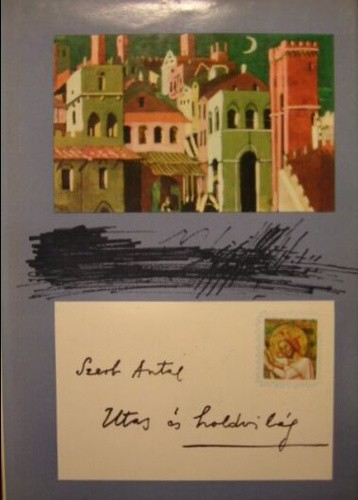 Szerb Antal
Utas és holdvilág